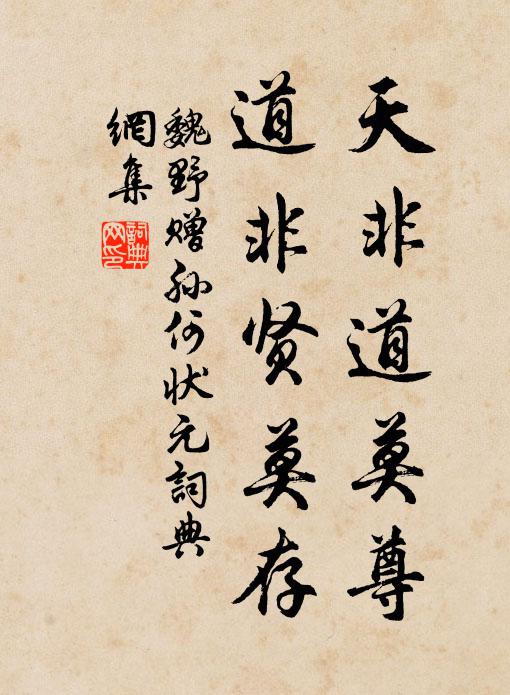 天非道莫尊
道非贤莫存
魏野赠孙何状元詞典
網集
詞典
网印